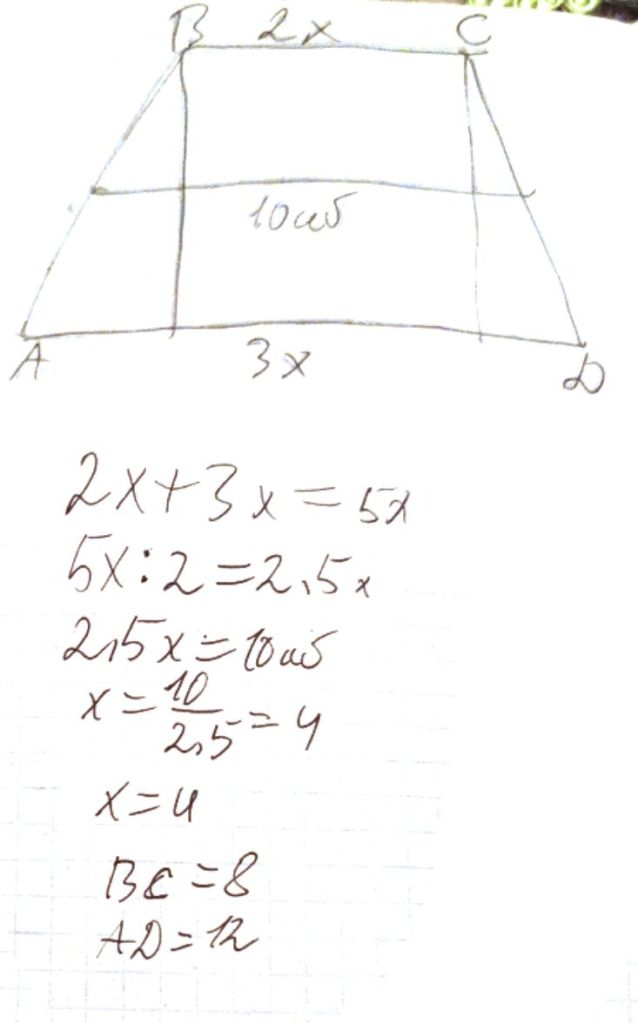 B 2x C
10 սմ
A 3x D
2x+3x=5x
5x:2=2,5x
2,5x=10 սմ
x=10/2,5=4
x=4
BC=8
AD=12